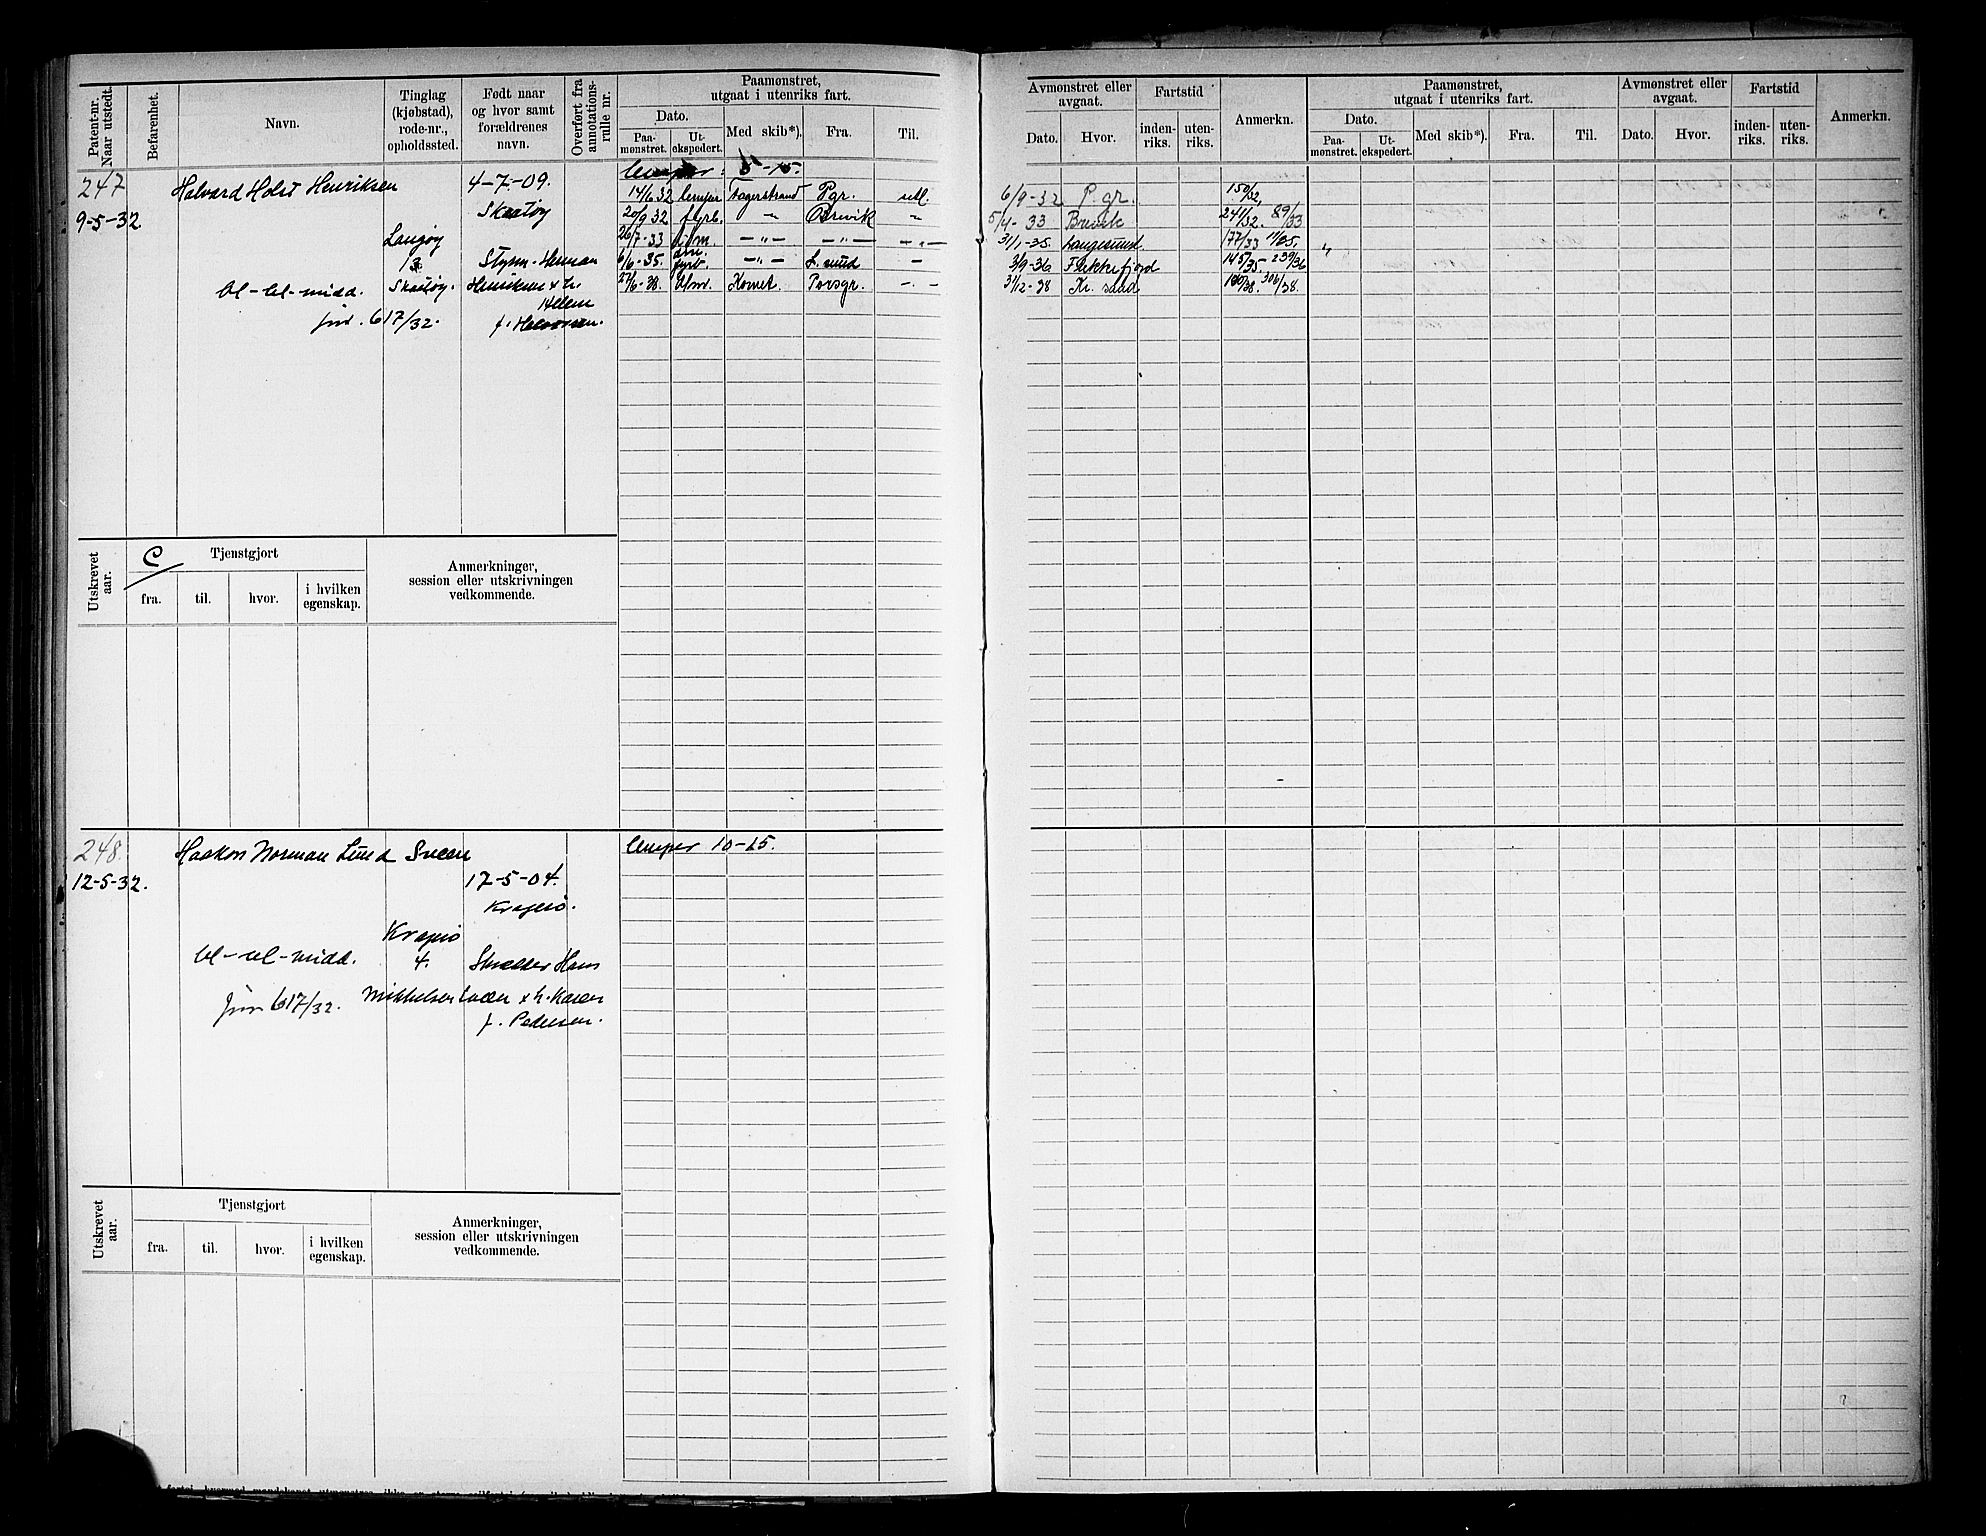 Patent-nr. Naar utstedt.
Befarenhet.
Navn.
Tinglag (kjøbstad), rode-nr., opholdssted.
Født naar og hvor samt forældrenes navn.
Overført fra annotations-rulle nr.
Paamønstret, utgaat i utenriks fart.
Dato.
Paa-mønstret.
Ut-ekspedert.
Med skib*).
Fra.
Til.
Avmønstret eller avgaat.
Dato.
Hvor.
Fartstid
inden-riks.
uten-riks.
Anmerkn.
Paamønstret, utgaat i utenriks fart.
Dato.
Paa-mønstret.
Ut-ekspedert.
Med skib*).
Fra.
Til.
Avmønstret eller avgaat.
Dato.
Hvor.
Fartstid
inden-riks.
uten-riks.
Anmerkn.
247
9-5-32.
Halvard Holst Henriksen
4-7-09.
Skaatøy
Langøy
Skaatøy.
Henriksen
Helene
617/32.
14/6 32 Fagerstrand Pgr. utl.
6/9-32 P.gr. 150/32.
20/9 32 " Brevik "
5/4-33 Brevik 241/32. 89/33
26/7-33 -"- -"- -"-
31/1-35. Langesund. 177/33 11/35.
6/6-35. -"- L.sund -
3/9-36 Flekkefjord 145/35. 239/36
27/6-38. Komet. Porsgr. -.-
31/12-38 Kr. sand
Utskrevet aar.
C
Tjenstgjort
fra.
til.
hvor.
i hvilken egenskap.
Anmerkninger, session eller utskrivningen vedkommende.
248.
12-5-32.
Haakon Norman Lund Sveen
10-15.
17-5-04.
Kragerø.
Kragerø
4.
Hans
617/32.
Mikkelsen Sveen
Karen
f. Pedersen.
Utskrevet aar.
Tjenstgjort
fra.
til.
hvor.
i hvilken egenskap.
Anmerkninger, session eller utskrivningen vedkommende.